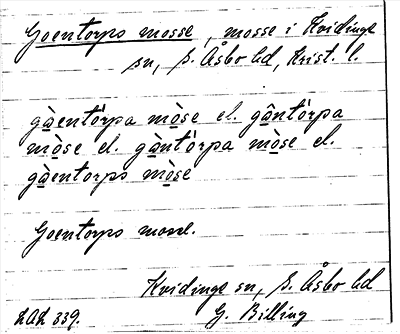 Goentorps mosse, mosse i Kvidinge
sn, S. Åsbo hd, Krist. l.
gàentórpa mòse el. gântórpa
mòse el. gàntórpa mòse el.
gàentorps mòse
Goentorps mosse.
Kvidinge sn, S. Åsbo hd
LAL 339. G. Billing